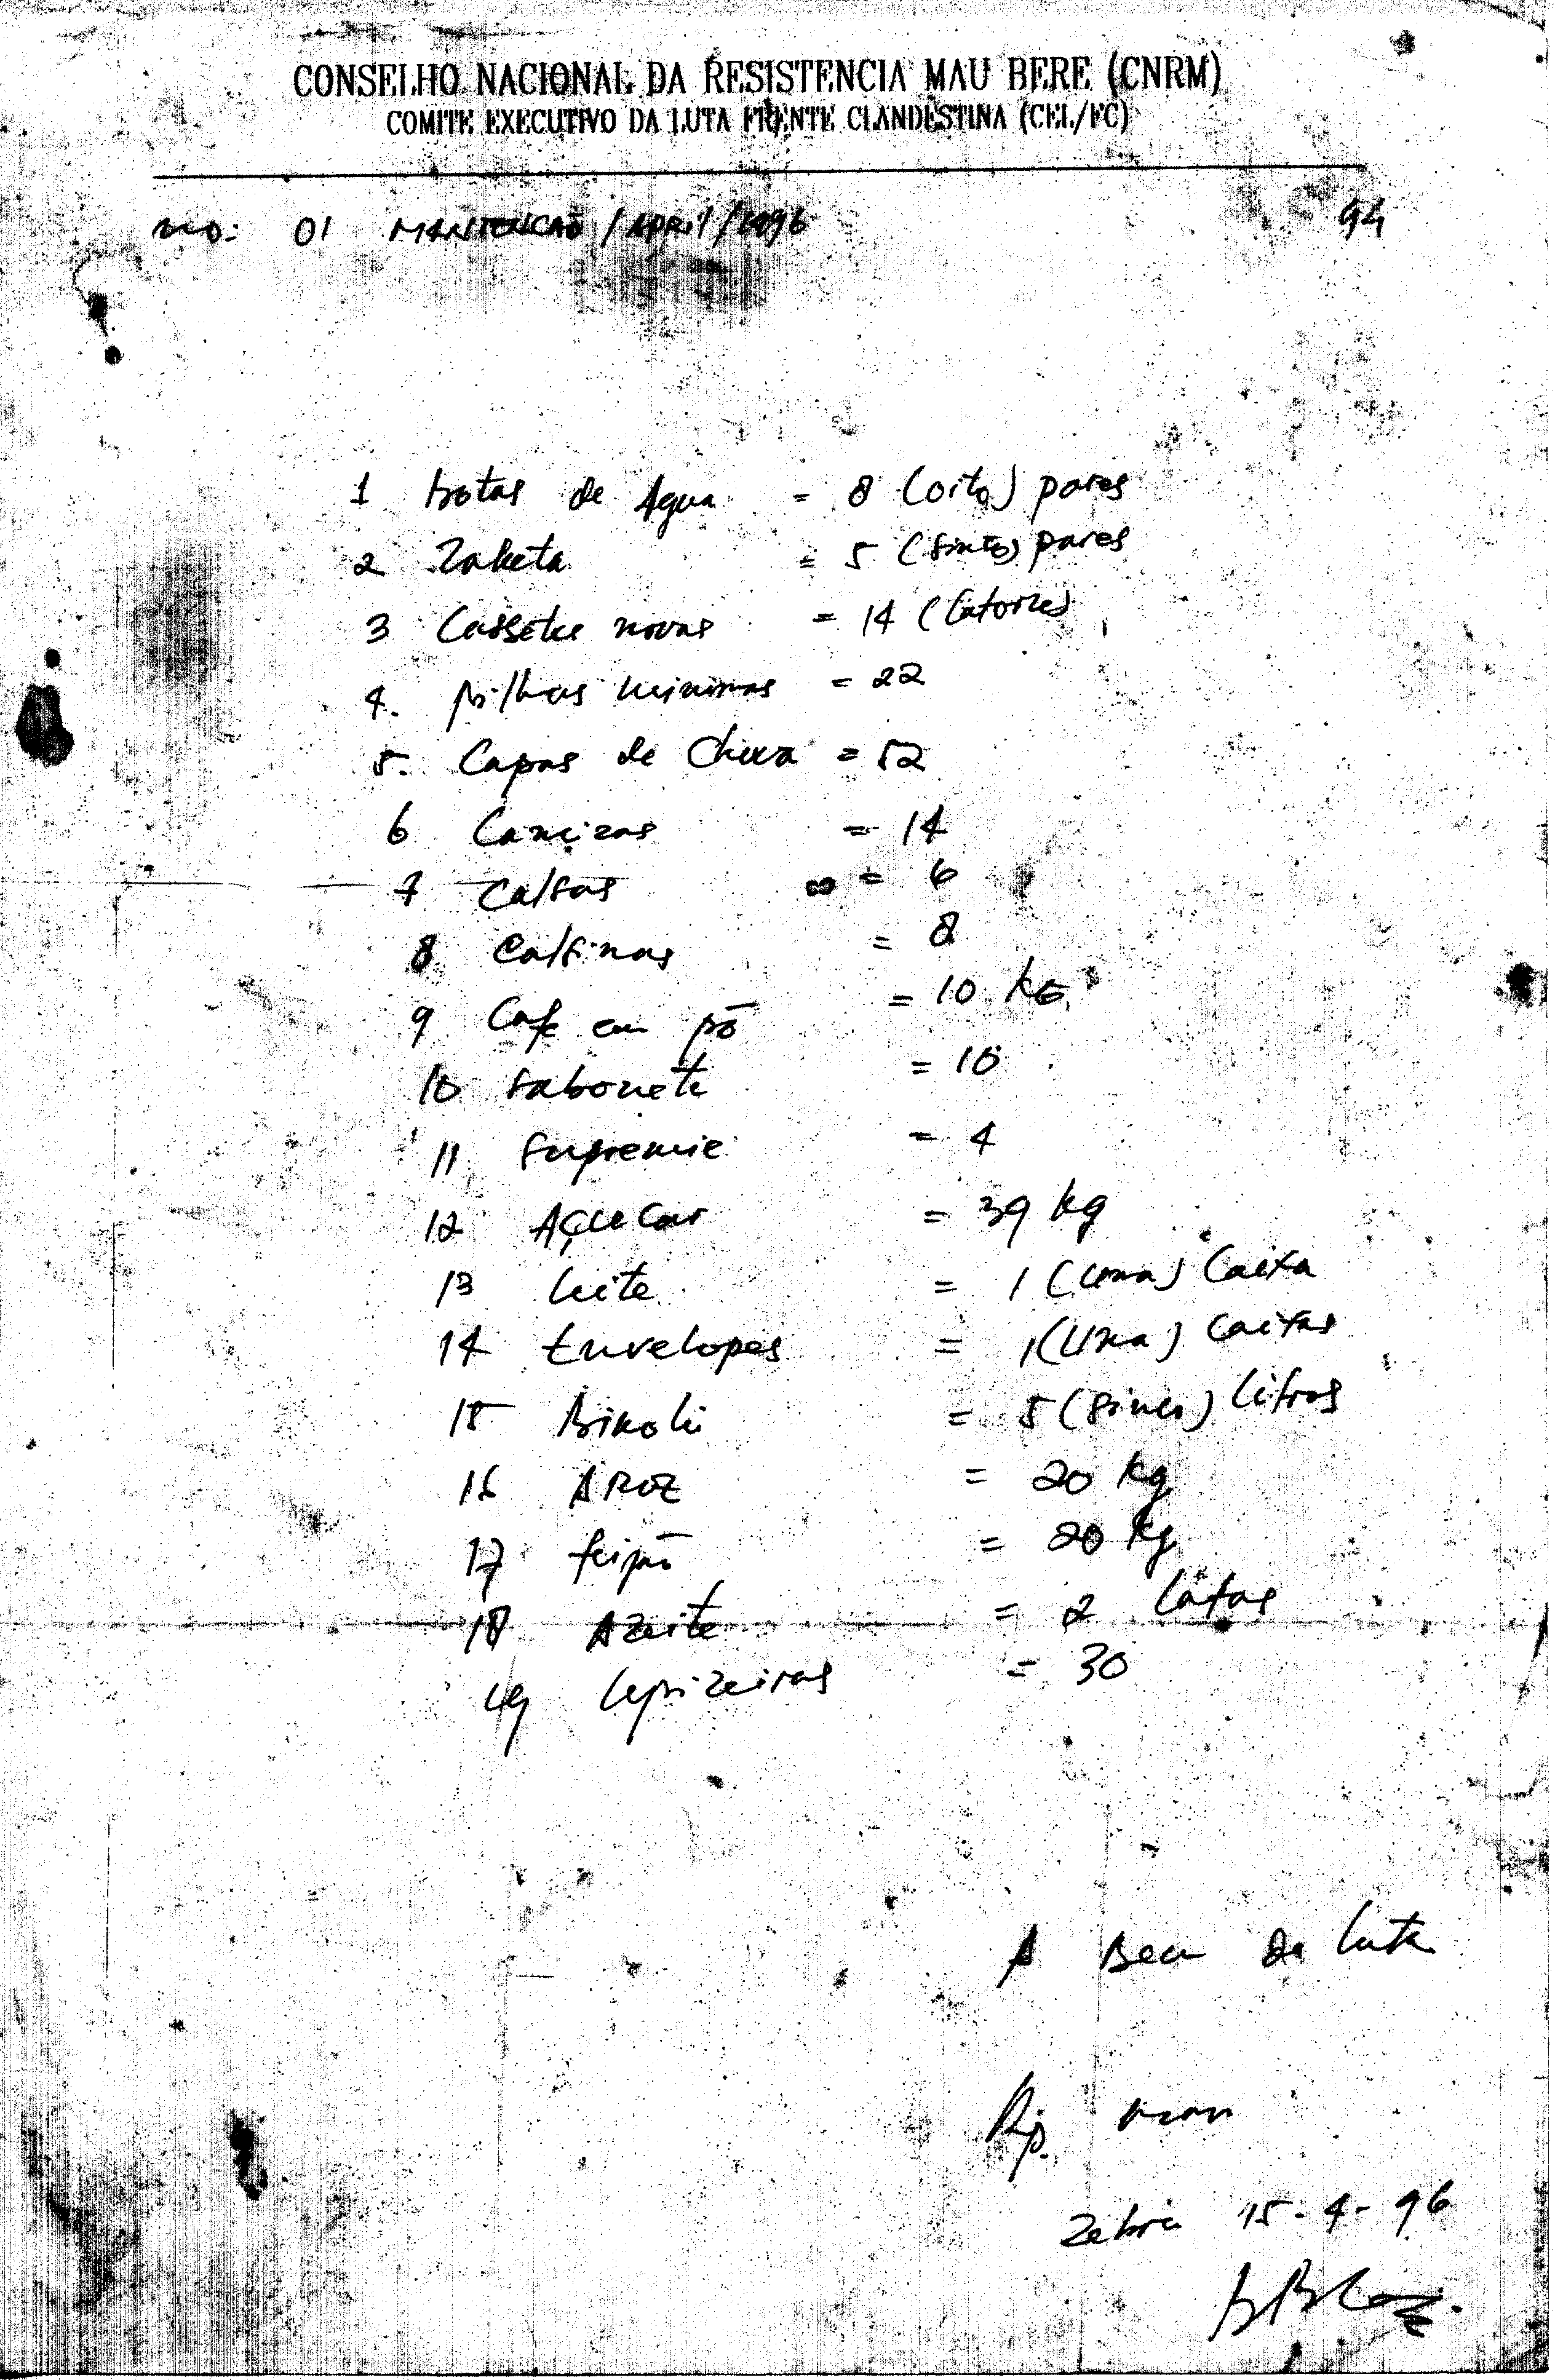 CONSELHO NACIONAL DA RESISTENCIA MAU BERE (CNRM)
COMITE EXECUTIVO DA LUTA FRENTE CLANDESTINA (CEL/FC)
NO: 01 MANTENCAÕ / APRIL / 1996 94
1 botas de Agua = 8 (oito) pares
2 Zaketa = 5 (sinto) pares
3 Cassetes novas = 14 (Catorze)
4. pilhas minimas = 22
5. Capas de Chuva = 52
6 Camizas = 14
7 Calsas = 6
8 Calsinas = 8
9 Cafe em pō = 10 KG
10 sabonete = 10
11 Supremie = 4
12 AÇucar = 39 kg
13 leite = 1 (uma) Caixa
14 Envelopes = 1 (Uma) Caixas
15 Bimoli = 5 (sinco) litros
16 AROZ = 20 kg
17 feijão = 20 kg
18 Azeite = 2 latas
19 lapizeiras = 30
A Bem da luta
Rip.
Zebra 15-4-96